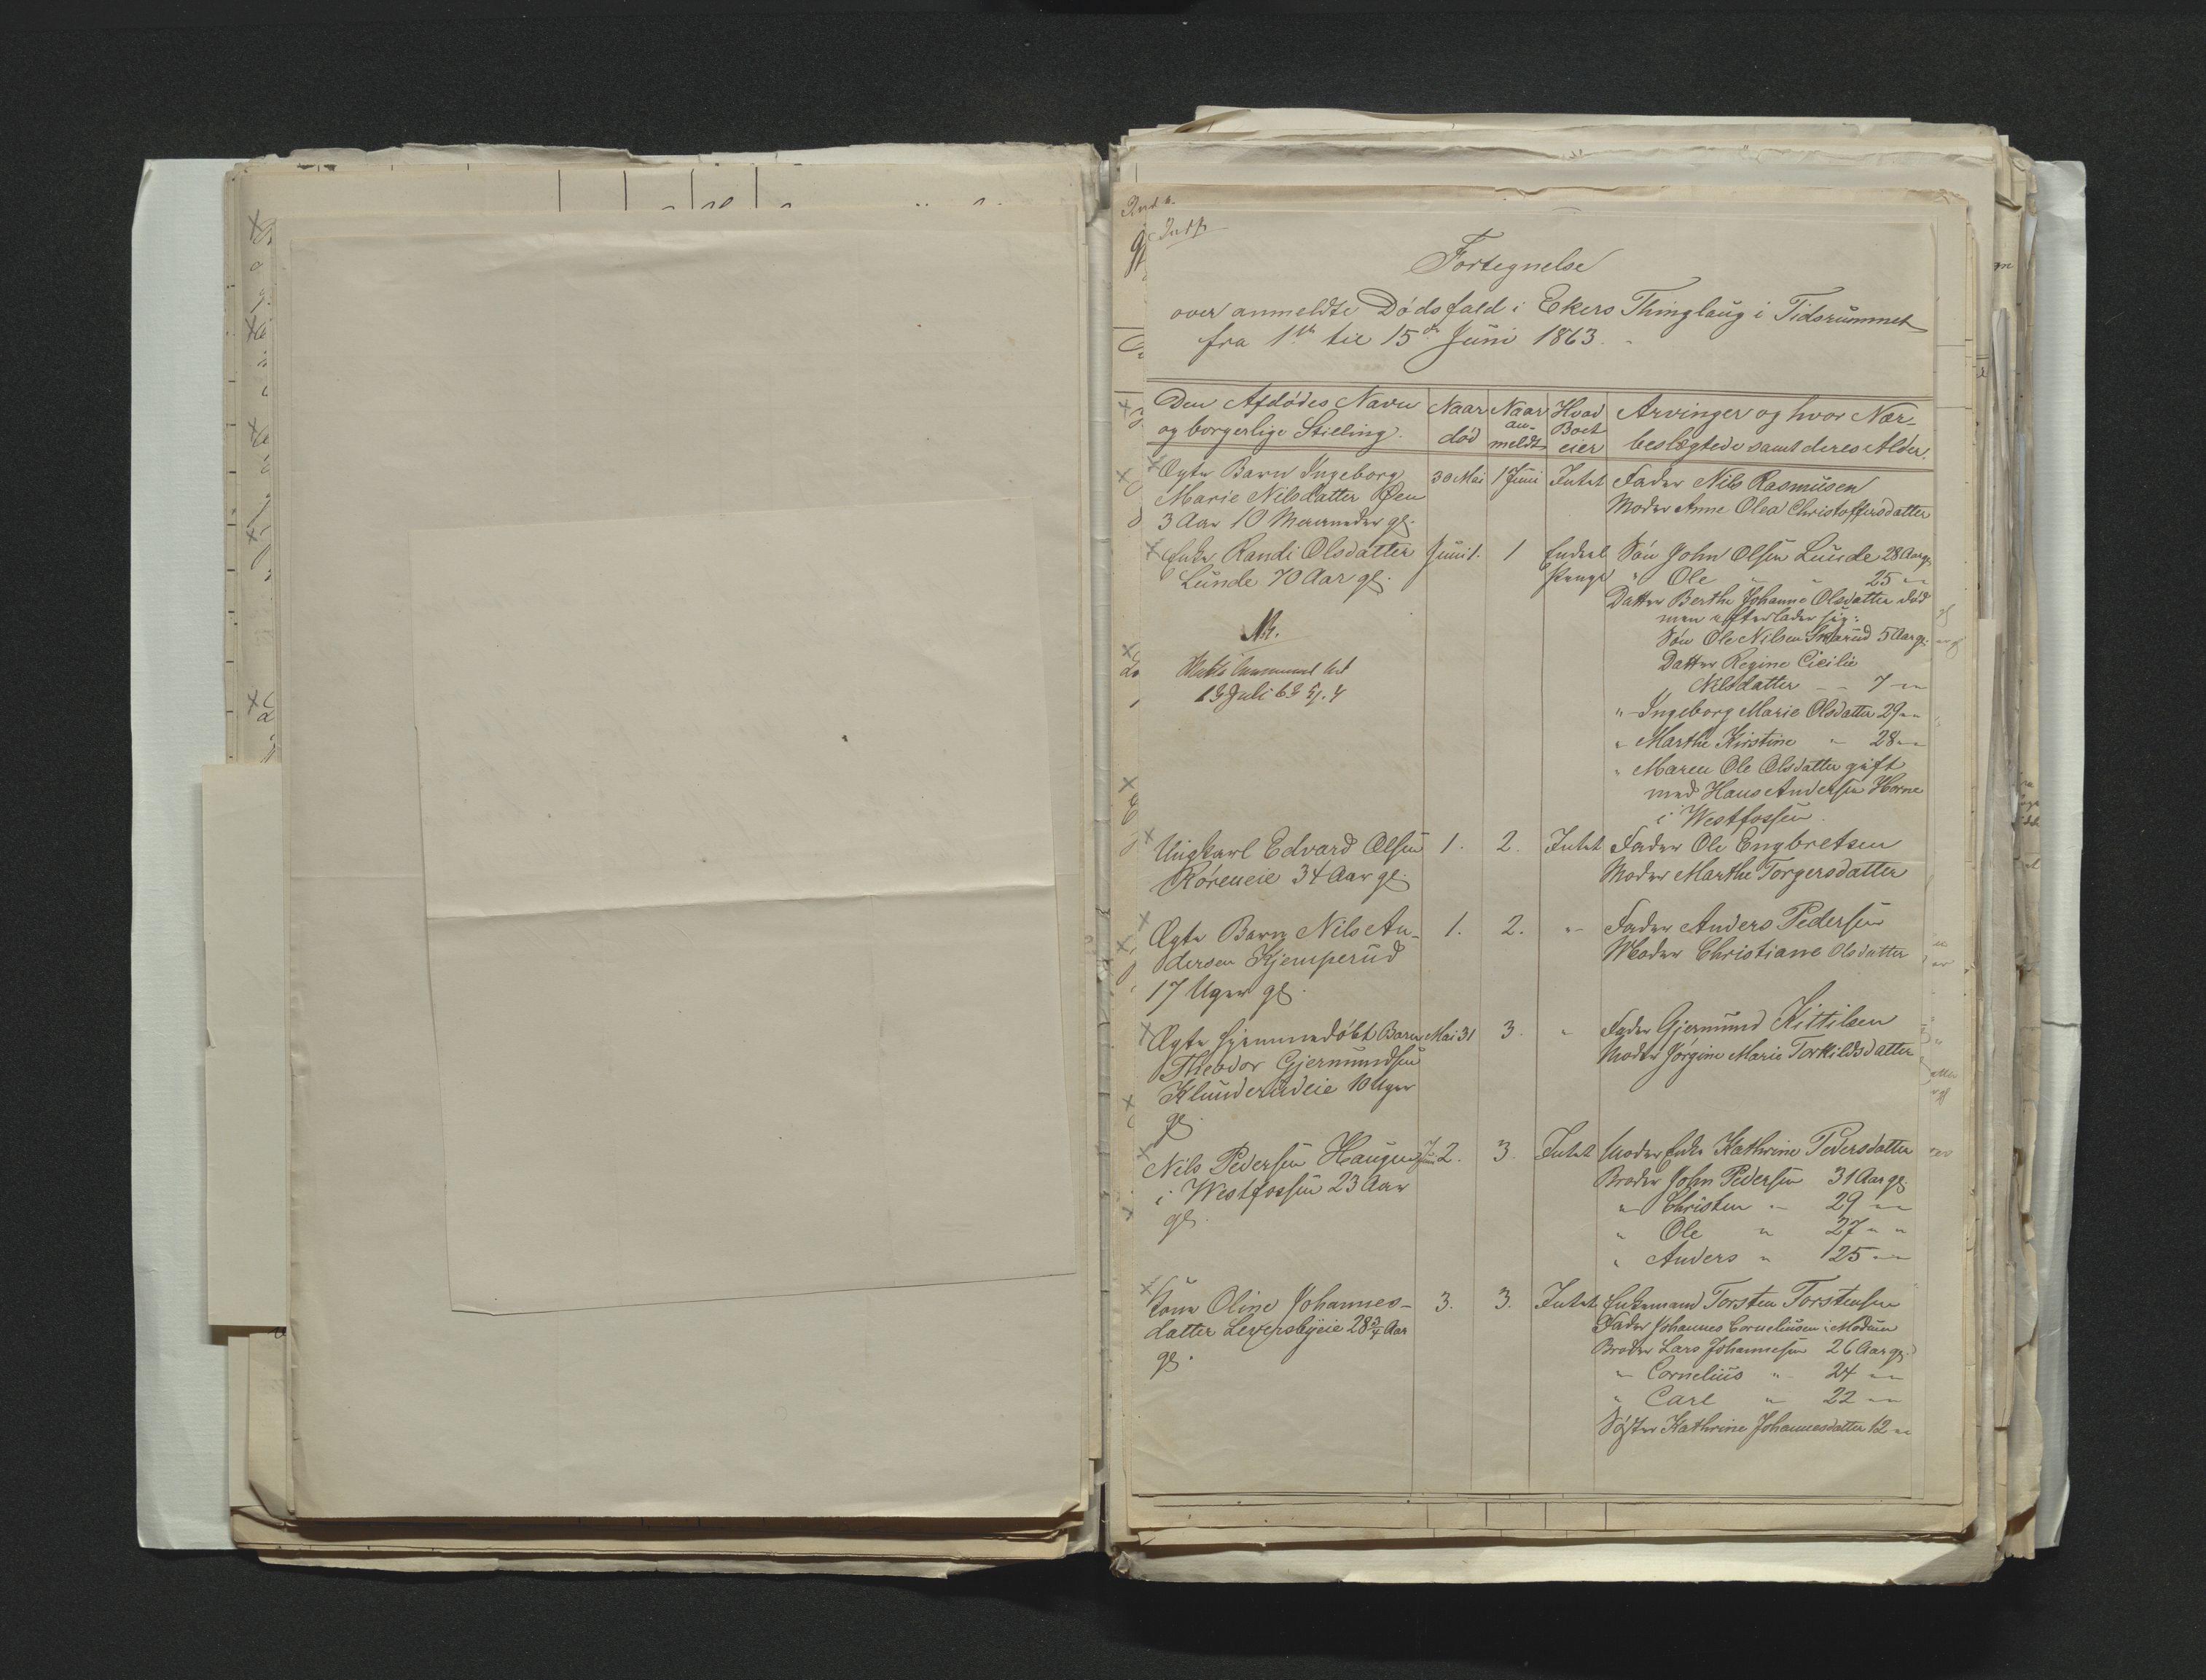 Fortegnelse
over anmeldte Dødsfald i Ekers Thinglaug i Tidsrummet
fra 1ste til 15de Juni 1863.
Den Afdødes Navn og borgerlige Stilling. Naar død Naar anmeldt Hvad Boet eier Arvinger og hvor Nærbeslægtede samt deres Alder.
Ægte Barn Ingeborg 30 Mai 1 Juni Intet Fader Nils Rasmusen
Marie Nilsdatter Øen Moder Anne Olea Christoffersdatter
3 Aar 10 Maaneder gl.
Enke Randi Olsdatter Juni 1. 1 Endeel Søn John Olsen Lunde 28 Aar gl.
Lunde 70 Aar gl. Penge " Ole " " 25 " "
Datter Berthe Johanne Olsdatter død
men efterlader sig:
Søn Ole Nilsen Skarud 5 Aar gl.
Datter Regine Cicilie
13 Juli 63
Nilsdatter - - 7 " "
" Ingeborg Marie Olsdatter 29 " "
" Marthe Kirstine " 28 " "
" Maren Ole Olsdatter gift
med Hans Andersen Horne
i Westfossen.
Ungkarl Edvard Olsen 1. 2. Intet Fader Ole Engbretsen
Røreneie 34 Aar gl. Moder Marthe Torgersdatter
Ægte Barn Nils An- 1. 2. " Fader Anders Pedersen
dersen Kjemperud Moder Christiane Olsdatter
17 Uger gl.
Ægte hjemmedøbt Barn Mai 31 3. " Fader Gjermund Kittilsen
Theodor Gjermundsen Moder Jørgine Marie Torkildsdatter
Klunderudeie 10 Uger
gl.
Nils Pedersen Haugen Juni 2. 3. Intet Moder Enke Kathrine Pedersdatter
i Westfossen 23 Aar Broder John Pedersen 31 Aar gl.
gl. " Christen " 29 " "
" Ole " 27 " "
" Anders " 25 " "
Kone Oline Johannes- 3. 3. Intet Enkemand Torsten Torstensen
datter Leversbyeie 28 3/4 Aar Fader Johannes Corneliusen i Modum
gl. Broder Lars Johannesen 26 Aar gl.
" Cornelius " 24 " "
" Carl " 22 " "
Søster Kathrine Johannesdatter 12 " "